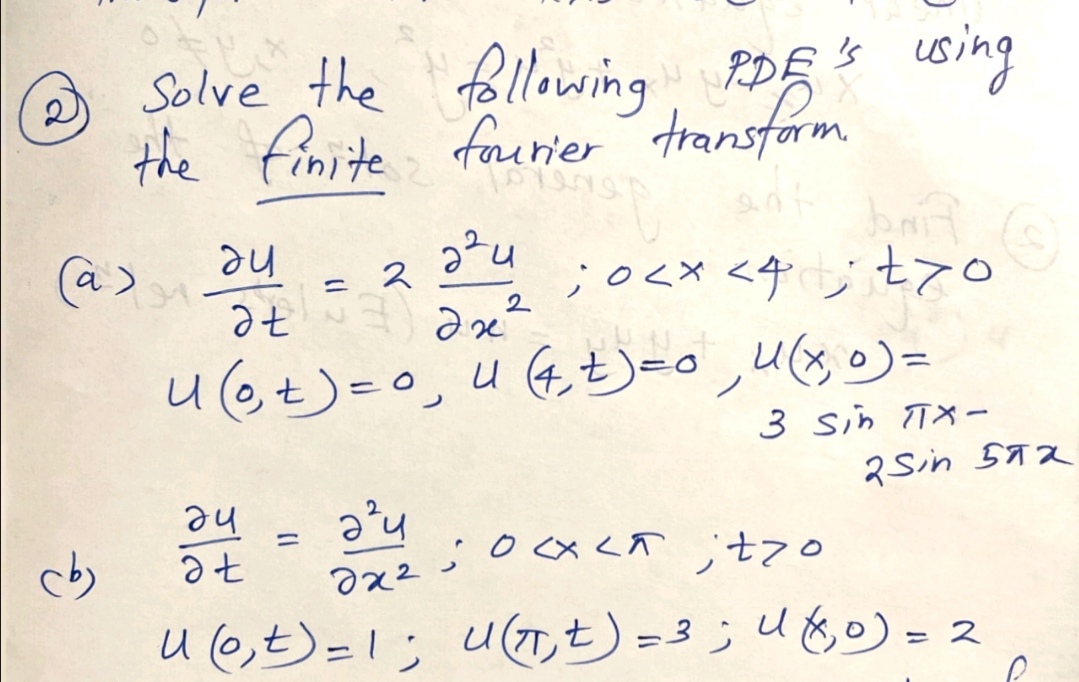 ② Solve the following PDE's using
the finite fourier transform.
(a) ∂u/∂t = 2 ∂²u/∂x² ; 0<x<4 ; t>0
u(0,t)=0, u(4,t)=0, u(x,0)=
3 sin πx-
2 sin 5πx
(b) ∂u/∂t = ∂²u/∂x² ; 0<x<π ; t>0
u(0,t)=1 ; u(π,t)=3 ; u(x,0)=2